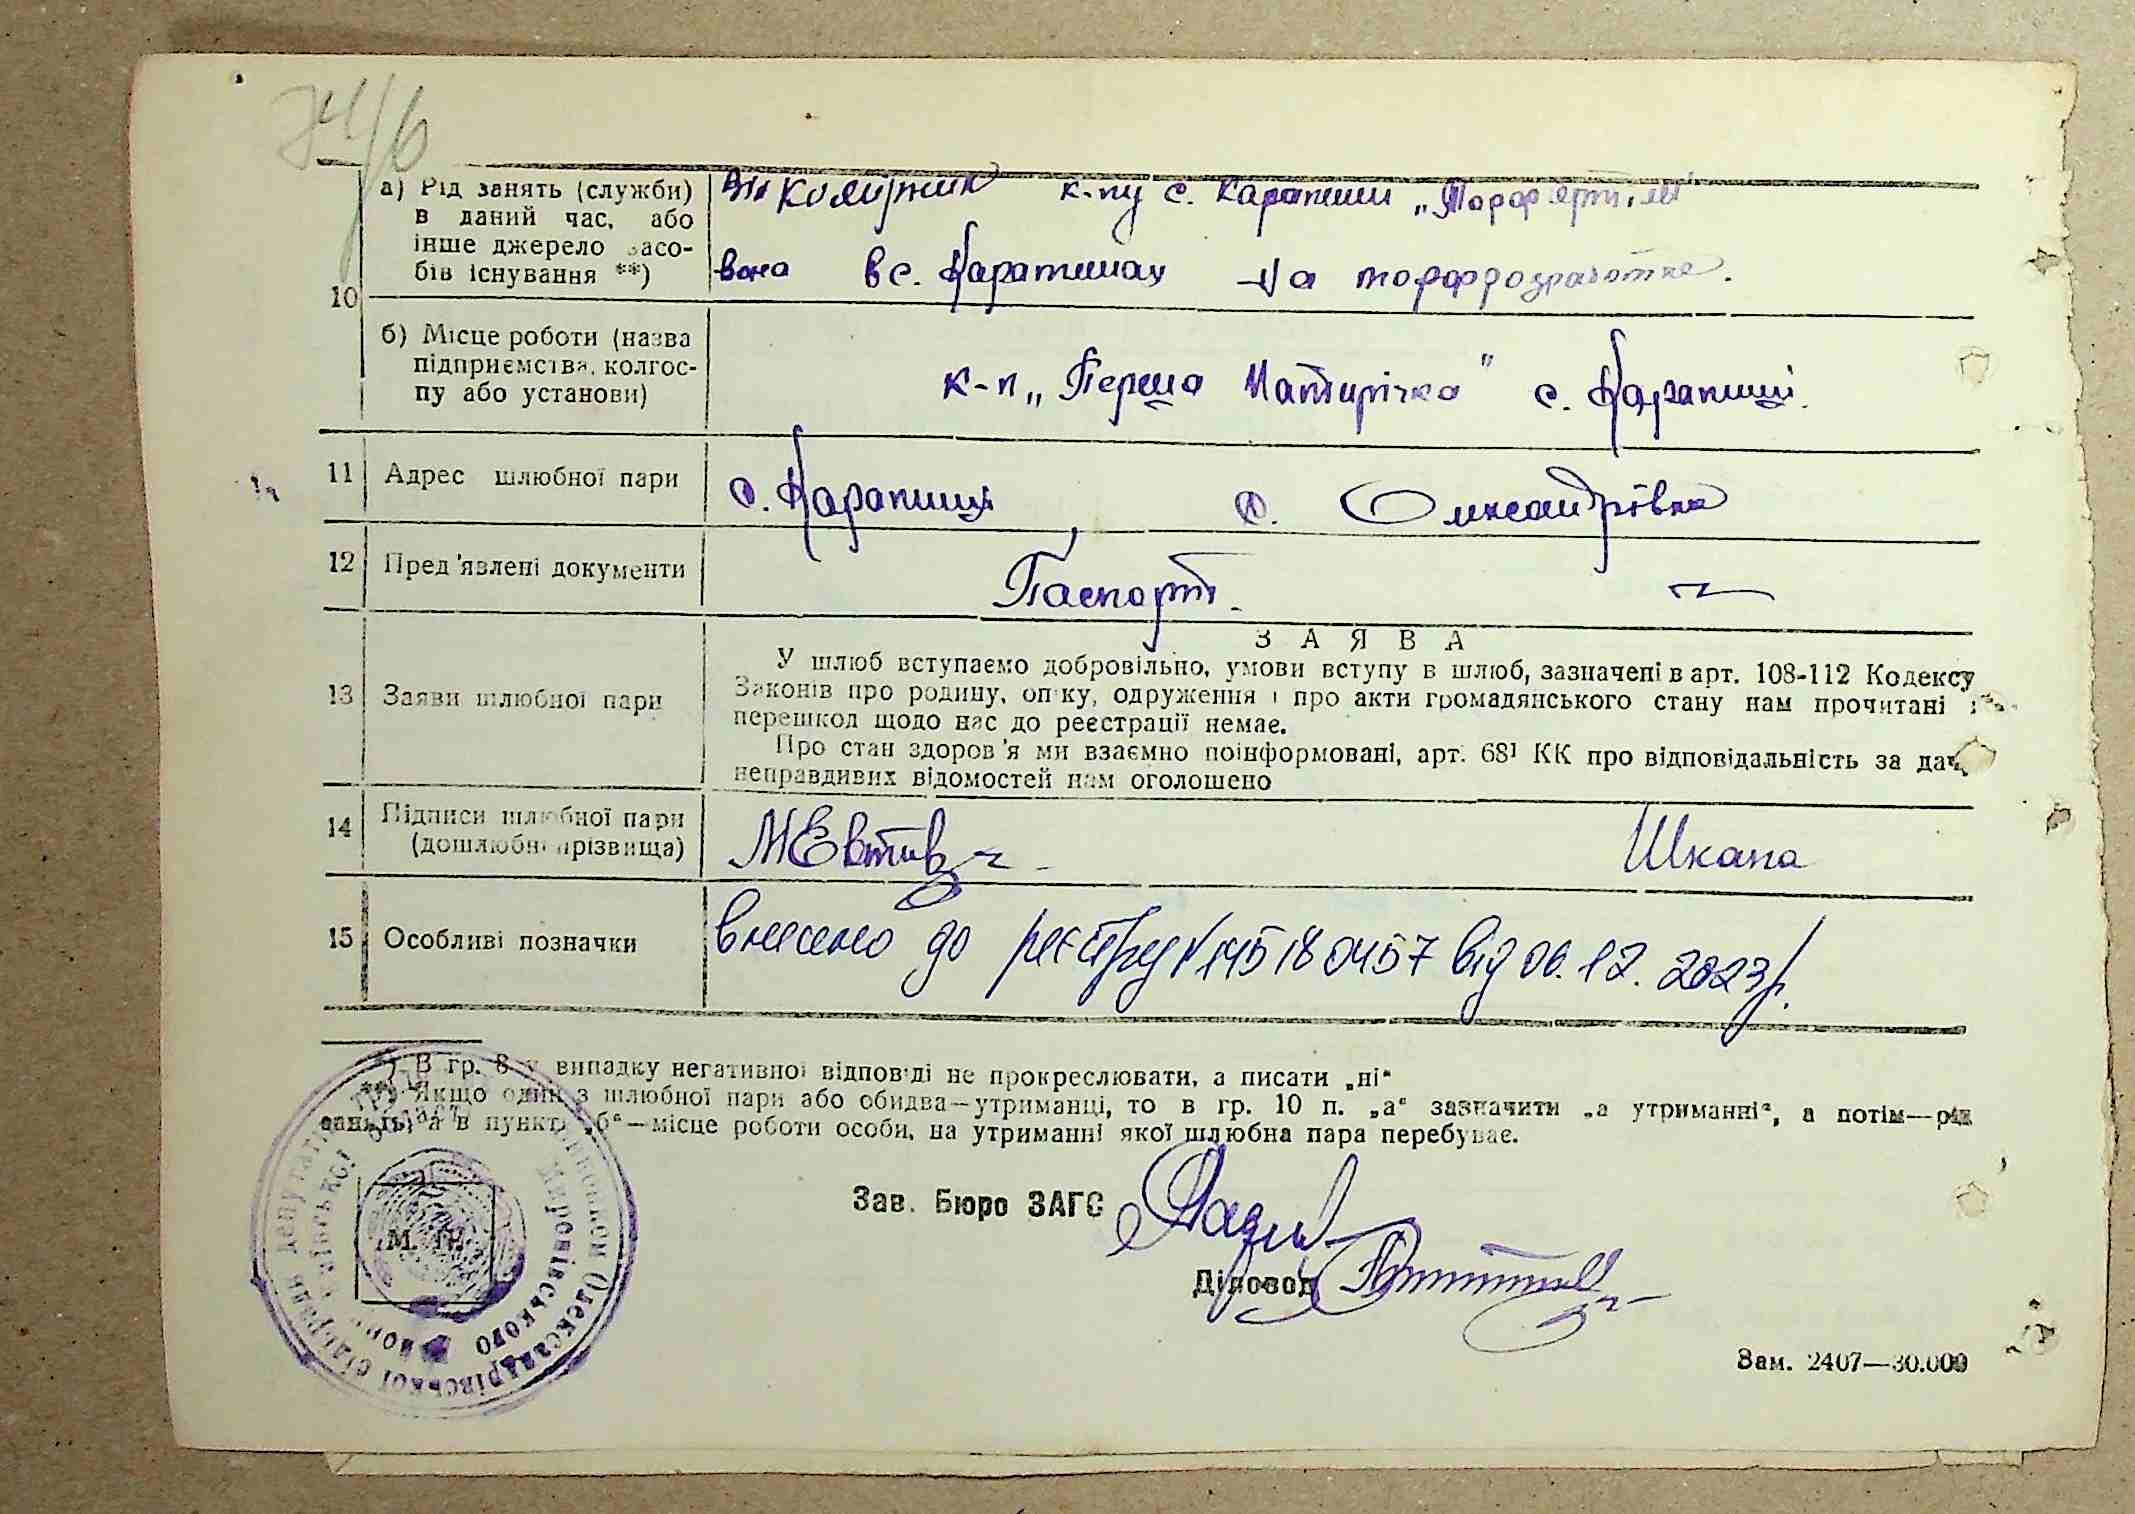 74/6
10
а) Рід занять (служби)
в даний час, або
інше джерело засо-
бів існування **)
він к-пу с. Карапиши
вона в с. Карапишах На торфрозработке.
б) Місце роботи (назва
підприємства, колгос-
пу або установи)
к-п „Перша Пятирічка" с. Карапиші.
11 Адрес шлюбної пари с. Карапиші с. Олександрівка
12 Пред'явлені документи Паспорт. —
З А Я В А
13 Заяви шлюбної пари
У шлюб вступаємо добровільно, умови вступу в шлюб, зазначені в арт. 108-112 Кодексу
Законів про родину, опіку, одруження і про акти громадянського стану нам прочитані і
перешкод щодо нас до реєстрації немає.
Про стан здоров'я ми взаємно поінформовані, арт. 68¹ КК про відповідальність за дач
неправдивих відомостей нам оголошено
14 Підписи шлюбної пари
(дошлюбні прізвища)
МЕвтив Шкапа
15 Особливі позначки внесено до реєстру № 145180457 від 06.12.2023р.
*) В гр. 8 у випадку негативної відповіді не прокреслювати, а писати „ні“
**) Якщо один з шлюбної пари або обидва—утриманці, то в гр. 10 п. „а“ зазначити „а утриманні“, а потім—рід
занять, а в пункті „б“—місце роботи особи, на утриманні якої шлюбна пара перебуває.
Зав. Бюро ЗАГС
Діловод
М. П.
Олександрівської сільради депутатів
Миронівського району Київської області
Зам. 2407—30.000